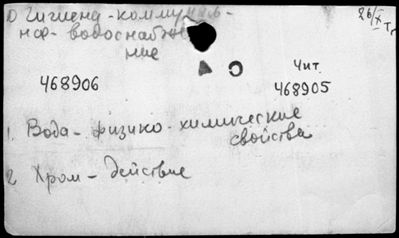 О Гигиена-коммуналь-
ная-водоснабже
ние
26/X Тг
Чит
468906
468905
1. Вода - физико-химические
свойства
2 Хром - действие